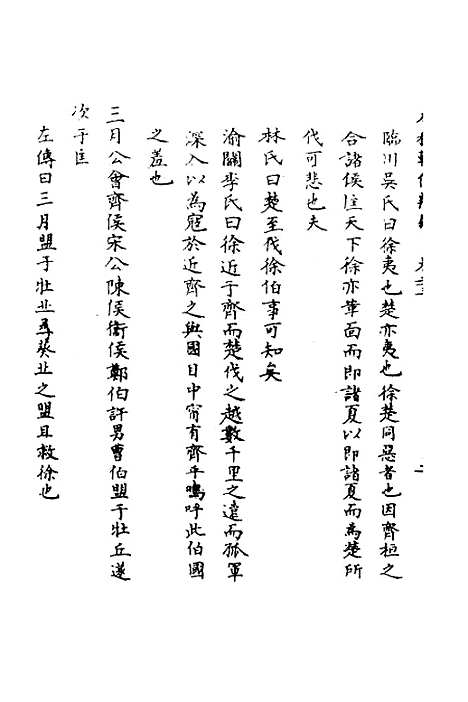 臨川吳氏曰徐夷也楚亦夷也徐楚同惡者也因齊桓之
合諸侯匡天下徐亦革面而即諸夏以即諸夏而為楚所
伐可悲也夫
林氏曰楚至伐徐伯事可知矣
渝關李氏曰徐近于齊而楚伐之越數千里之遠而孤軍
深入以為寇於近齊之與國目中甯有齊乎嗚呼此伯國
之羞也
三月公會齊侯宋公陳侯衛侯鄭伯許男曹伯盟于牡丘遂
次于匡
左傳曰三月盟于牡丘尋葵丘之盟且救徐也